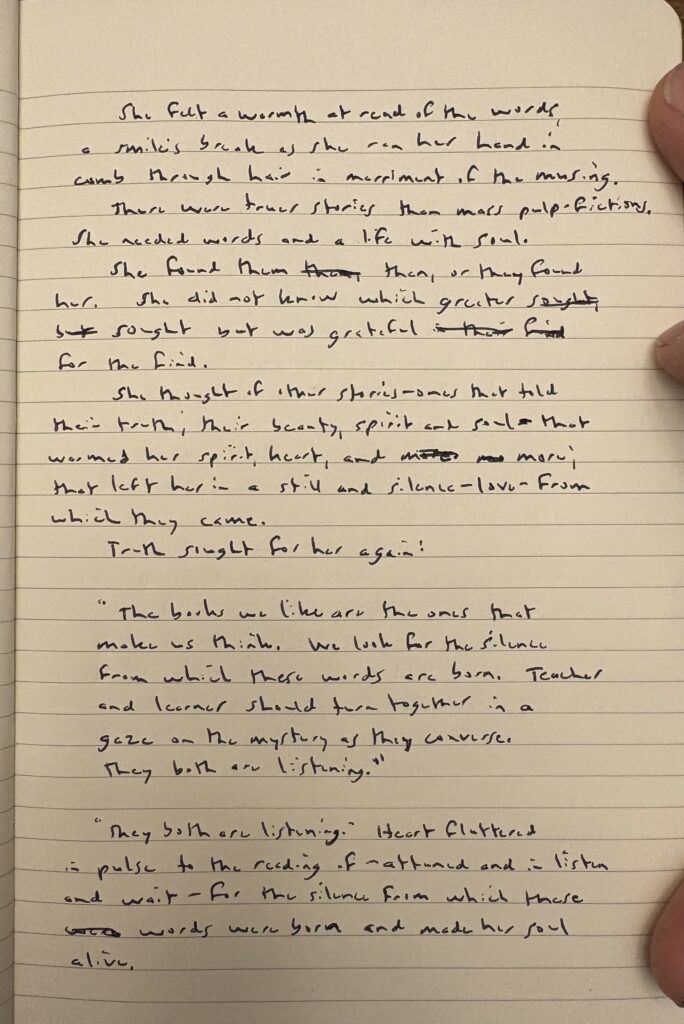 She felt a warmth at read of the words,
a smile's break as she ran her hand in
comb through hair in merriment of the musing.
There were truer stories than mass pulp-fictions.
She needed words and a life with soul.
She found them then, or they found
her. She did not know which greater sought,
but sought but was grateful in their find
for the find.
She thought of other stories-ones that told
their truth, their beauty, spirit and soul - that
warmed her spirit, heart, and more;
that left her in a still and silence-love-from
which they came.
Truth sought for her again:
"The books we like are the ones that
make us think. We look for the silence
from which these words are born. Teacher
and learner should turn together in a
gaze on the mystery as they converse.
They both are listening."¹
"They both are listening." Heart fluttered
in pulse to the reading of - attuned and in listen
and wait - for the silence from which these
words were born and made her soul
alive.